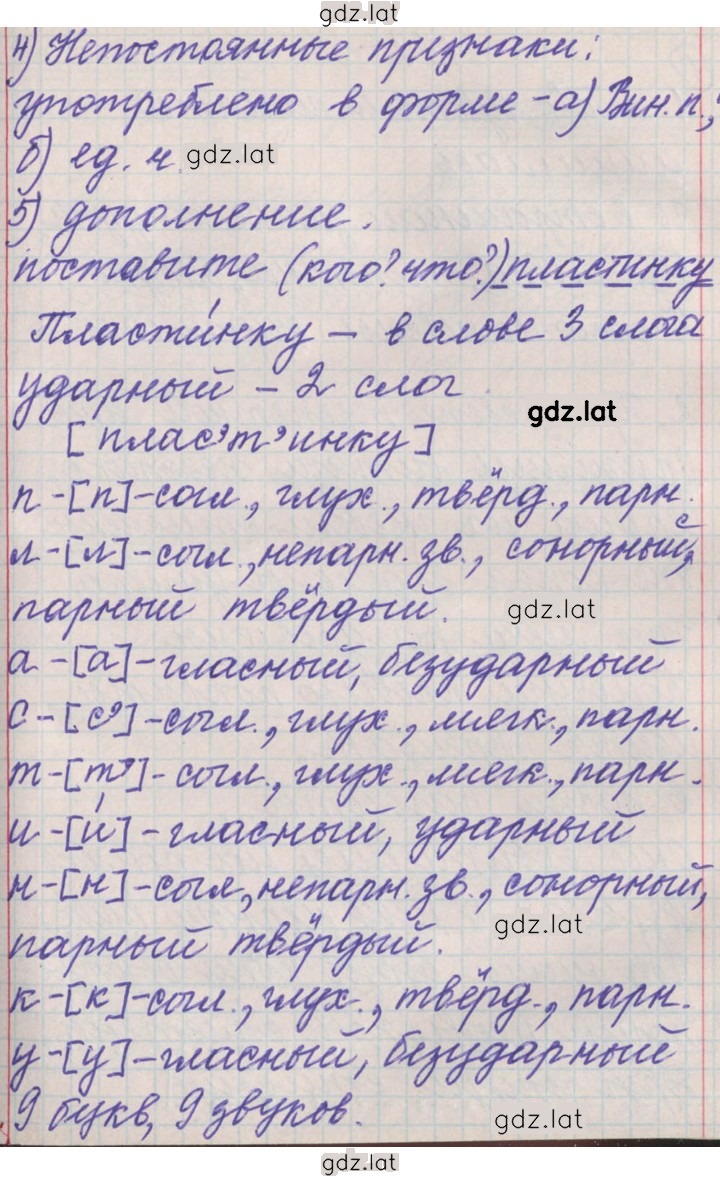 gdz.lat
4) Непостоянные признаки:
употреблено в форме - а) Вин. п.;
б) ед. ч. gdz.lat
5) дополнение.
поставите (кого? что?) пластинку
Пласти́нку – в слове 3 слога
ударный – 2 слог.
gdz.lat
[плас’т’инку]
п - [п] - согл., глух., твёрд., парн.
л - [л] - согл., непарн. зв., сонорный,
парный твёрдый. gdz.lat
а - [а] - гласный, безударный
с - [с’] - согл., глух., мягк., парн.
т - [т’] - согл., глух., мягк., парн.
и - [и́] - гласный, ударный
н - [н] - согл, непарн. зв., сонорный,
парный твёрдый. gdz.lat
к - [к] - согл., глух., твёрд., парн.
у - [у] - гласный, безударный
9 букв, 9 звуков. gdz.lat
gdz.lat